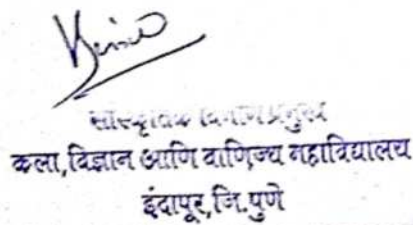 सांस्कृतिक विभाग प्रमुख
कला,विज्ञान आणि वाणिज्य महाविद्यालय
इंदापूर,जि.पुणे